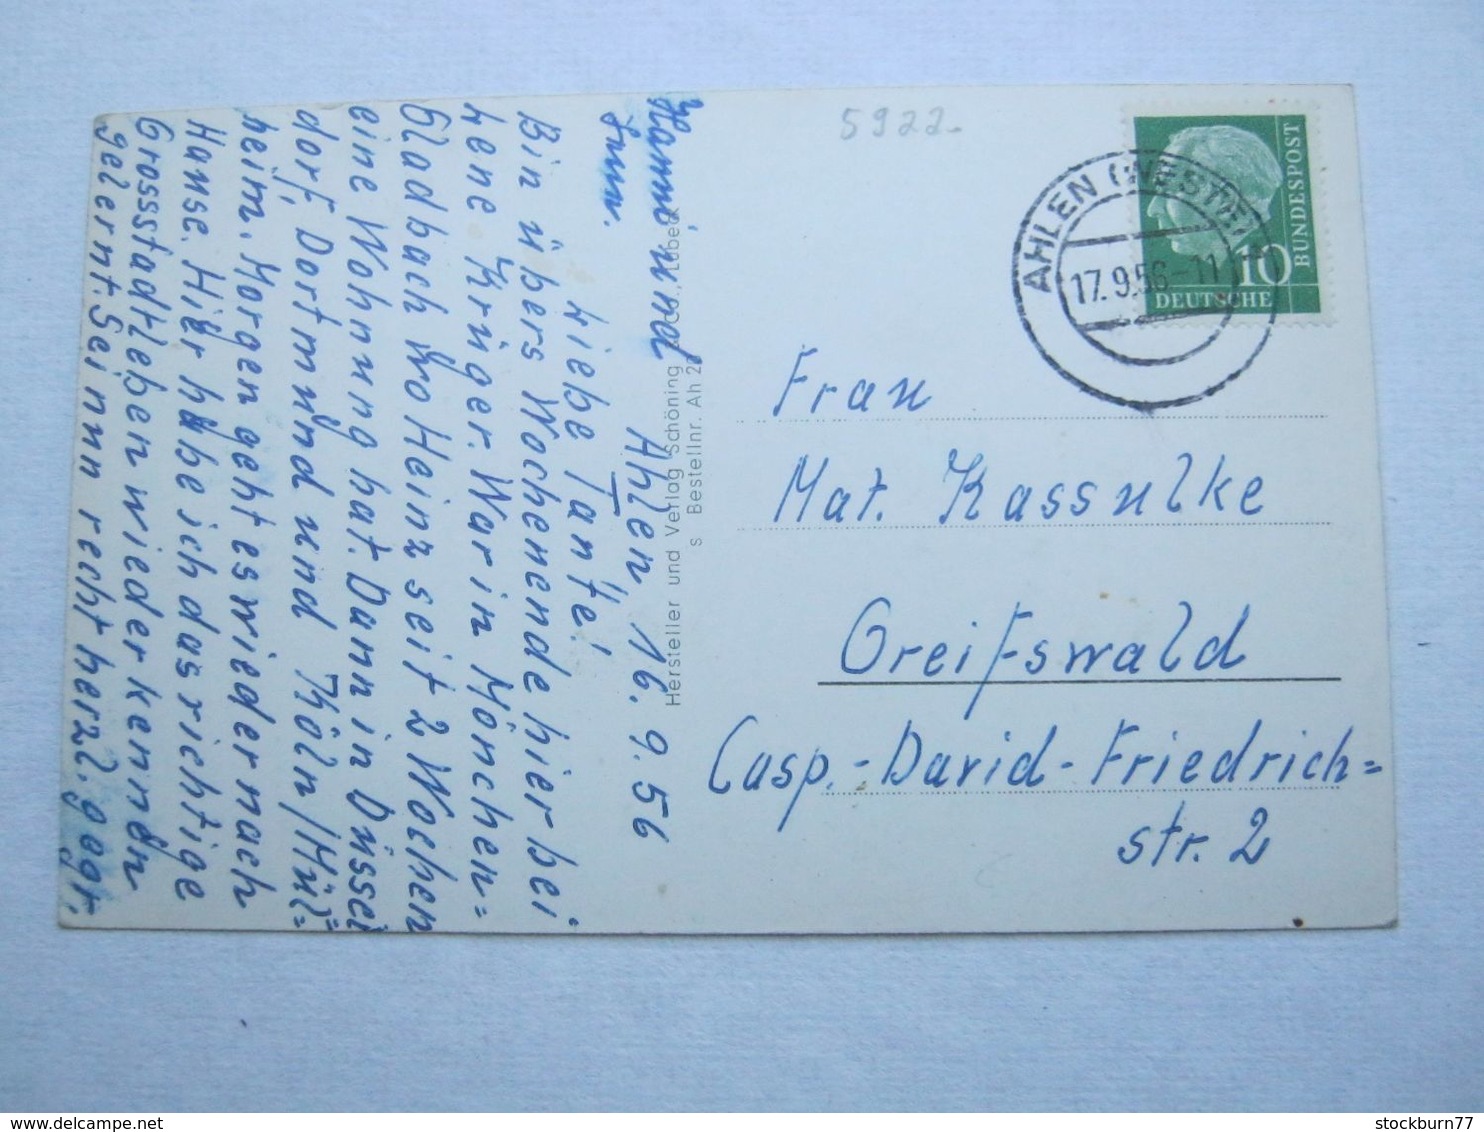 5922.
AHLEN (WESTF)
17.9.56-11
BUNDESPOST
10
DEUTSCHE
Frau
Mat. Kassulke
Greifswald
Casp.-David-Friedrich=
str. 2
Hersteller und Verlag Schöning & Co., Lübeck
s Bestellnr. Ah 2
Ahlen 16. 9. 56
Liebe Tante!
Bin übers Wochenende hier bei
Lene Krüger. War in Mönchen=
Gladbach wo Heinz seit 2 Wochen
eine Wohnung hat. Dann in Düssel
dorf, Dortmund und Köln/Mül=
heim. Morgen geht es wieder nach
Hause. Hier habe ich das richtige
Grossstadtleben wieder kennen
gelernt Sei nun recht herzl. gegr.
Hanni und
stockburn77